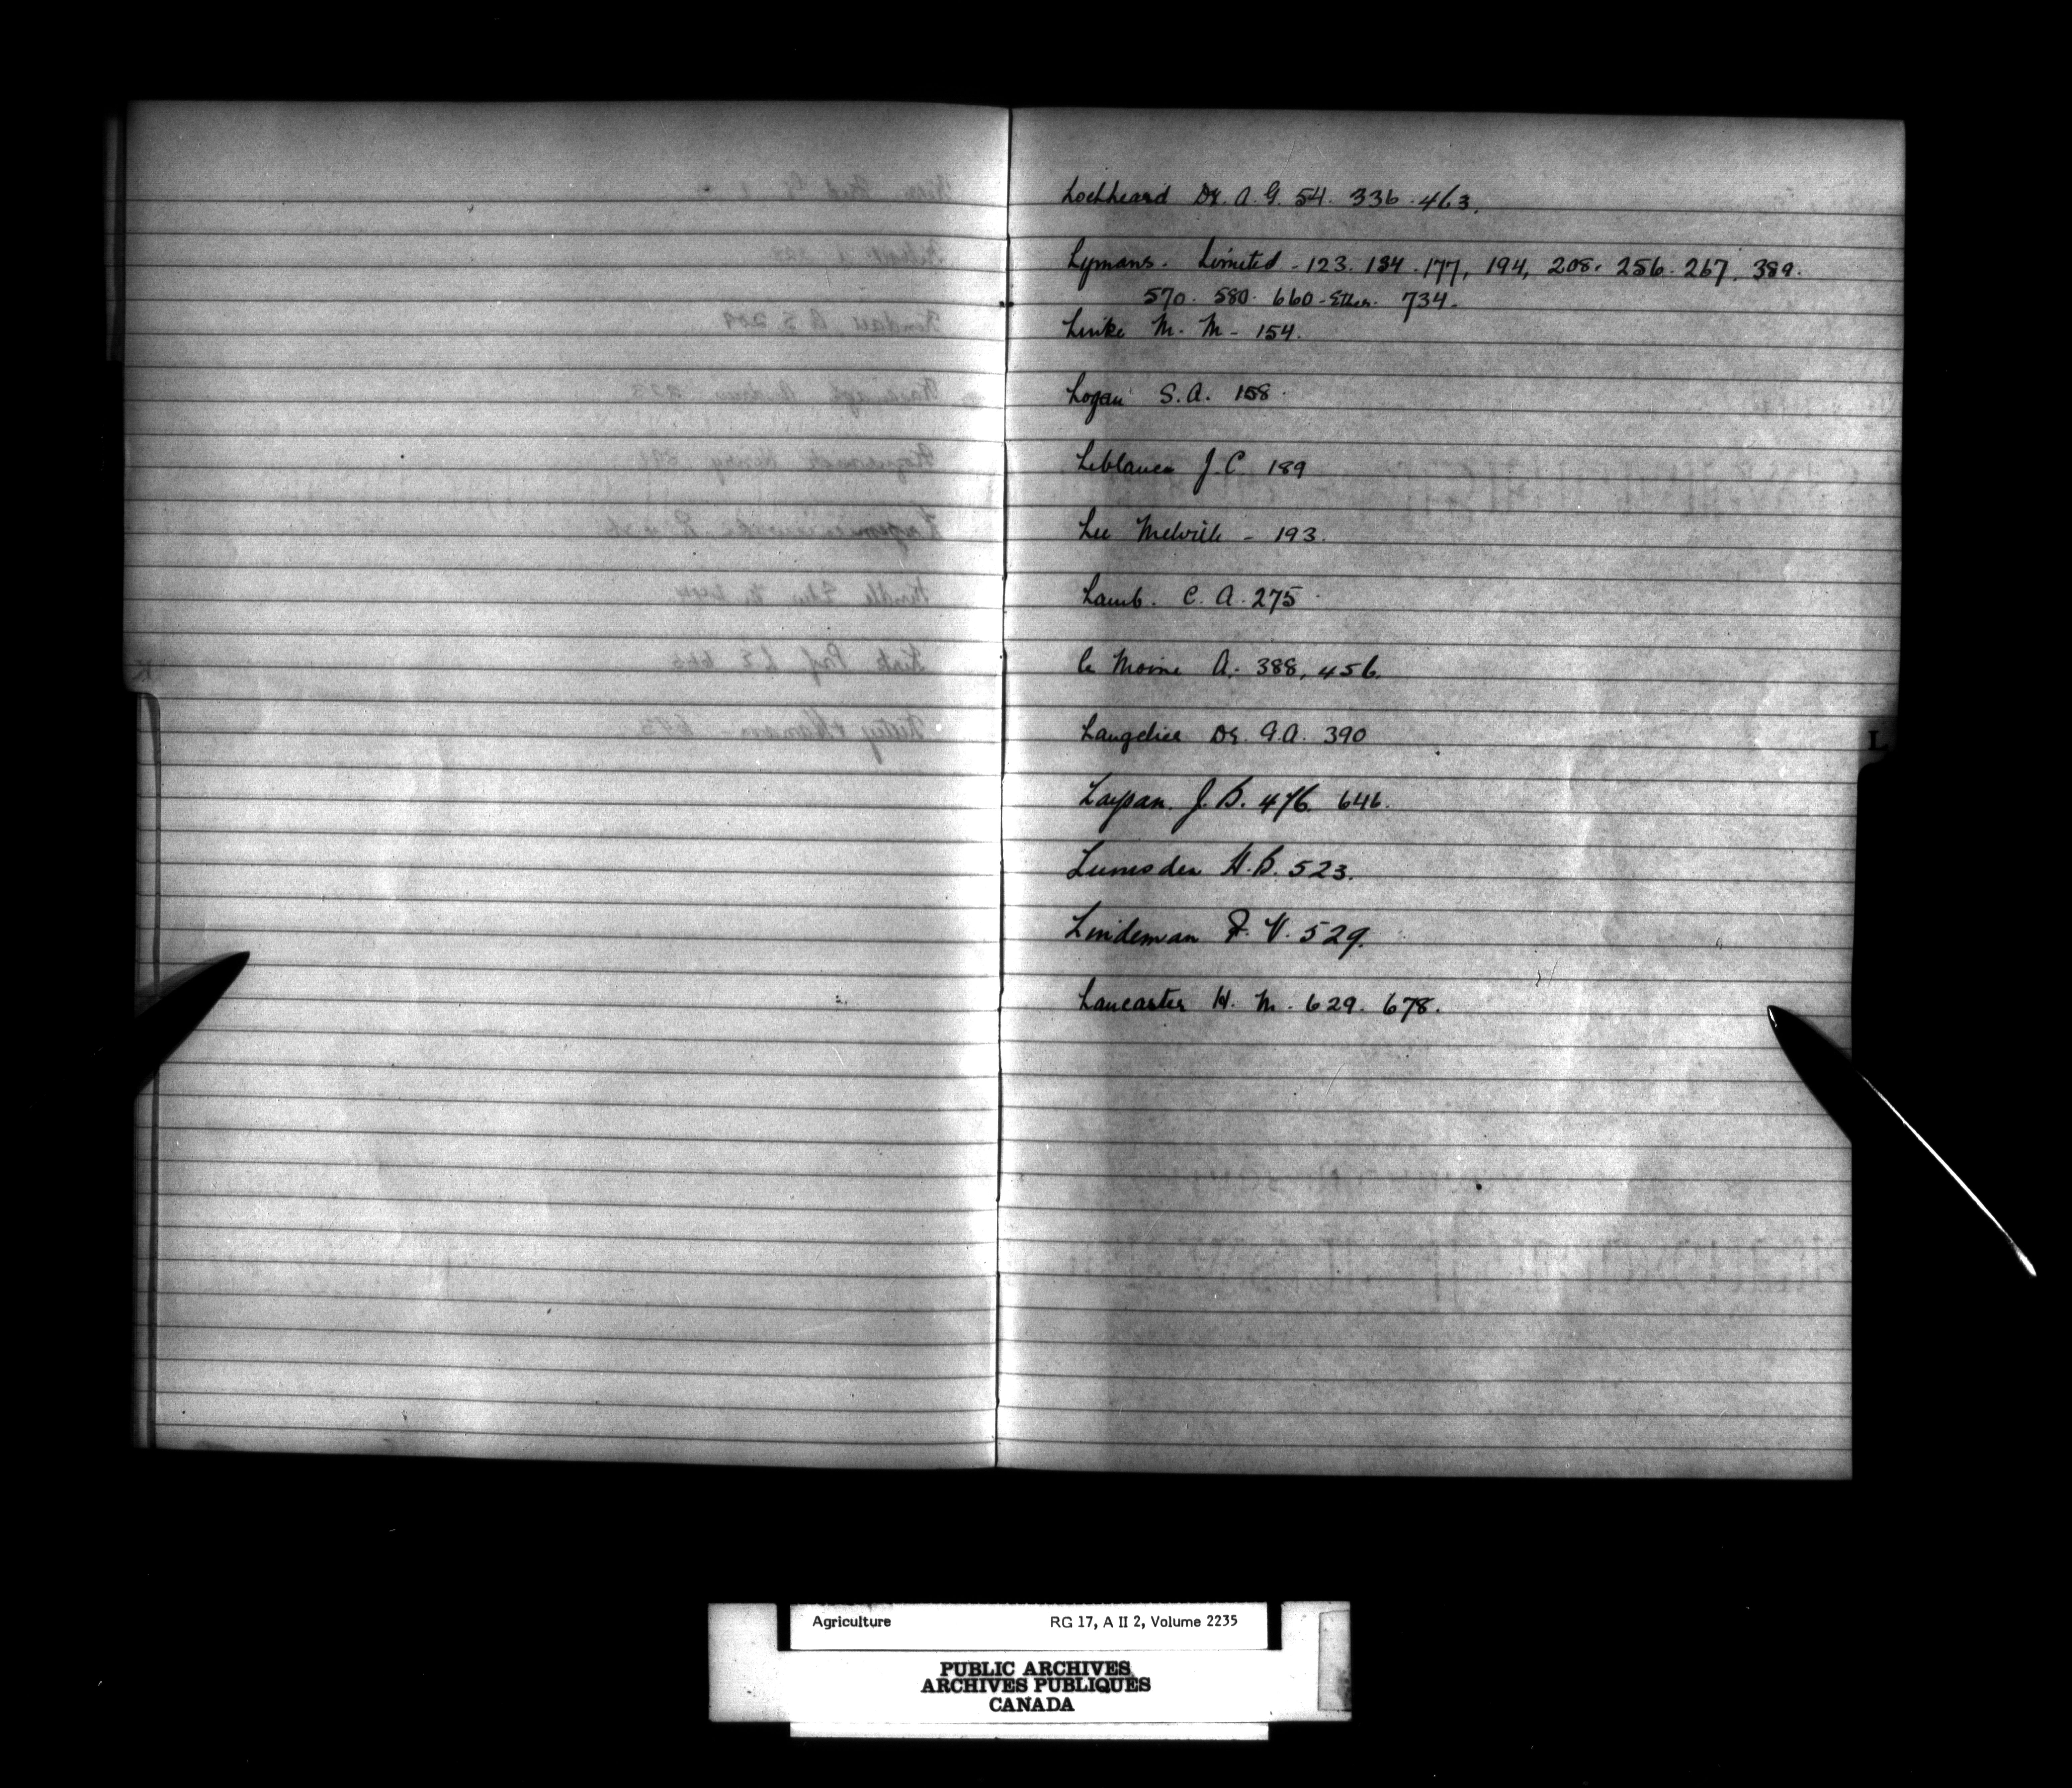 Lochheard Dr. A. G. 54. 336. 463.
Lymans. Limited - 123. 134. 177, 194, 208. 256. 267. 389.
570. 580. 660 - Ether. 734.
M. M - 154.
Logan S. A. 158.
Leblance J. C. 189
Lee Melville - 193.
Lamb. C. A. 275
Le Moine A. 388, 456.
Langelier Dr. G. A. 390
J. B. 476. 646.
Lumsden H. B. 523.
Lindeman F. V. 529.
Lancaster H. M - 629. 678.
L
Agriculture RG 17, A II 2, Volume 2235
PUBLIC ARCHIVES
ARCHIVES PUBLIQUES
CANADA